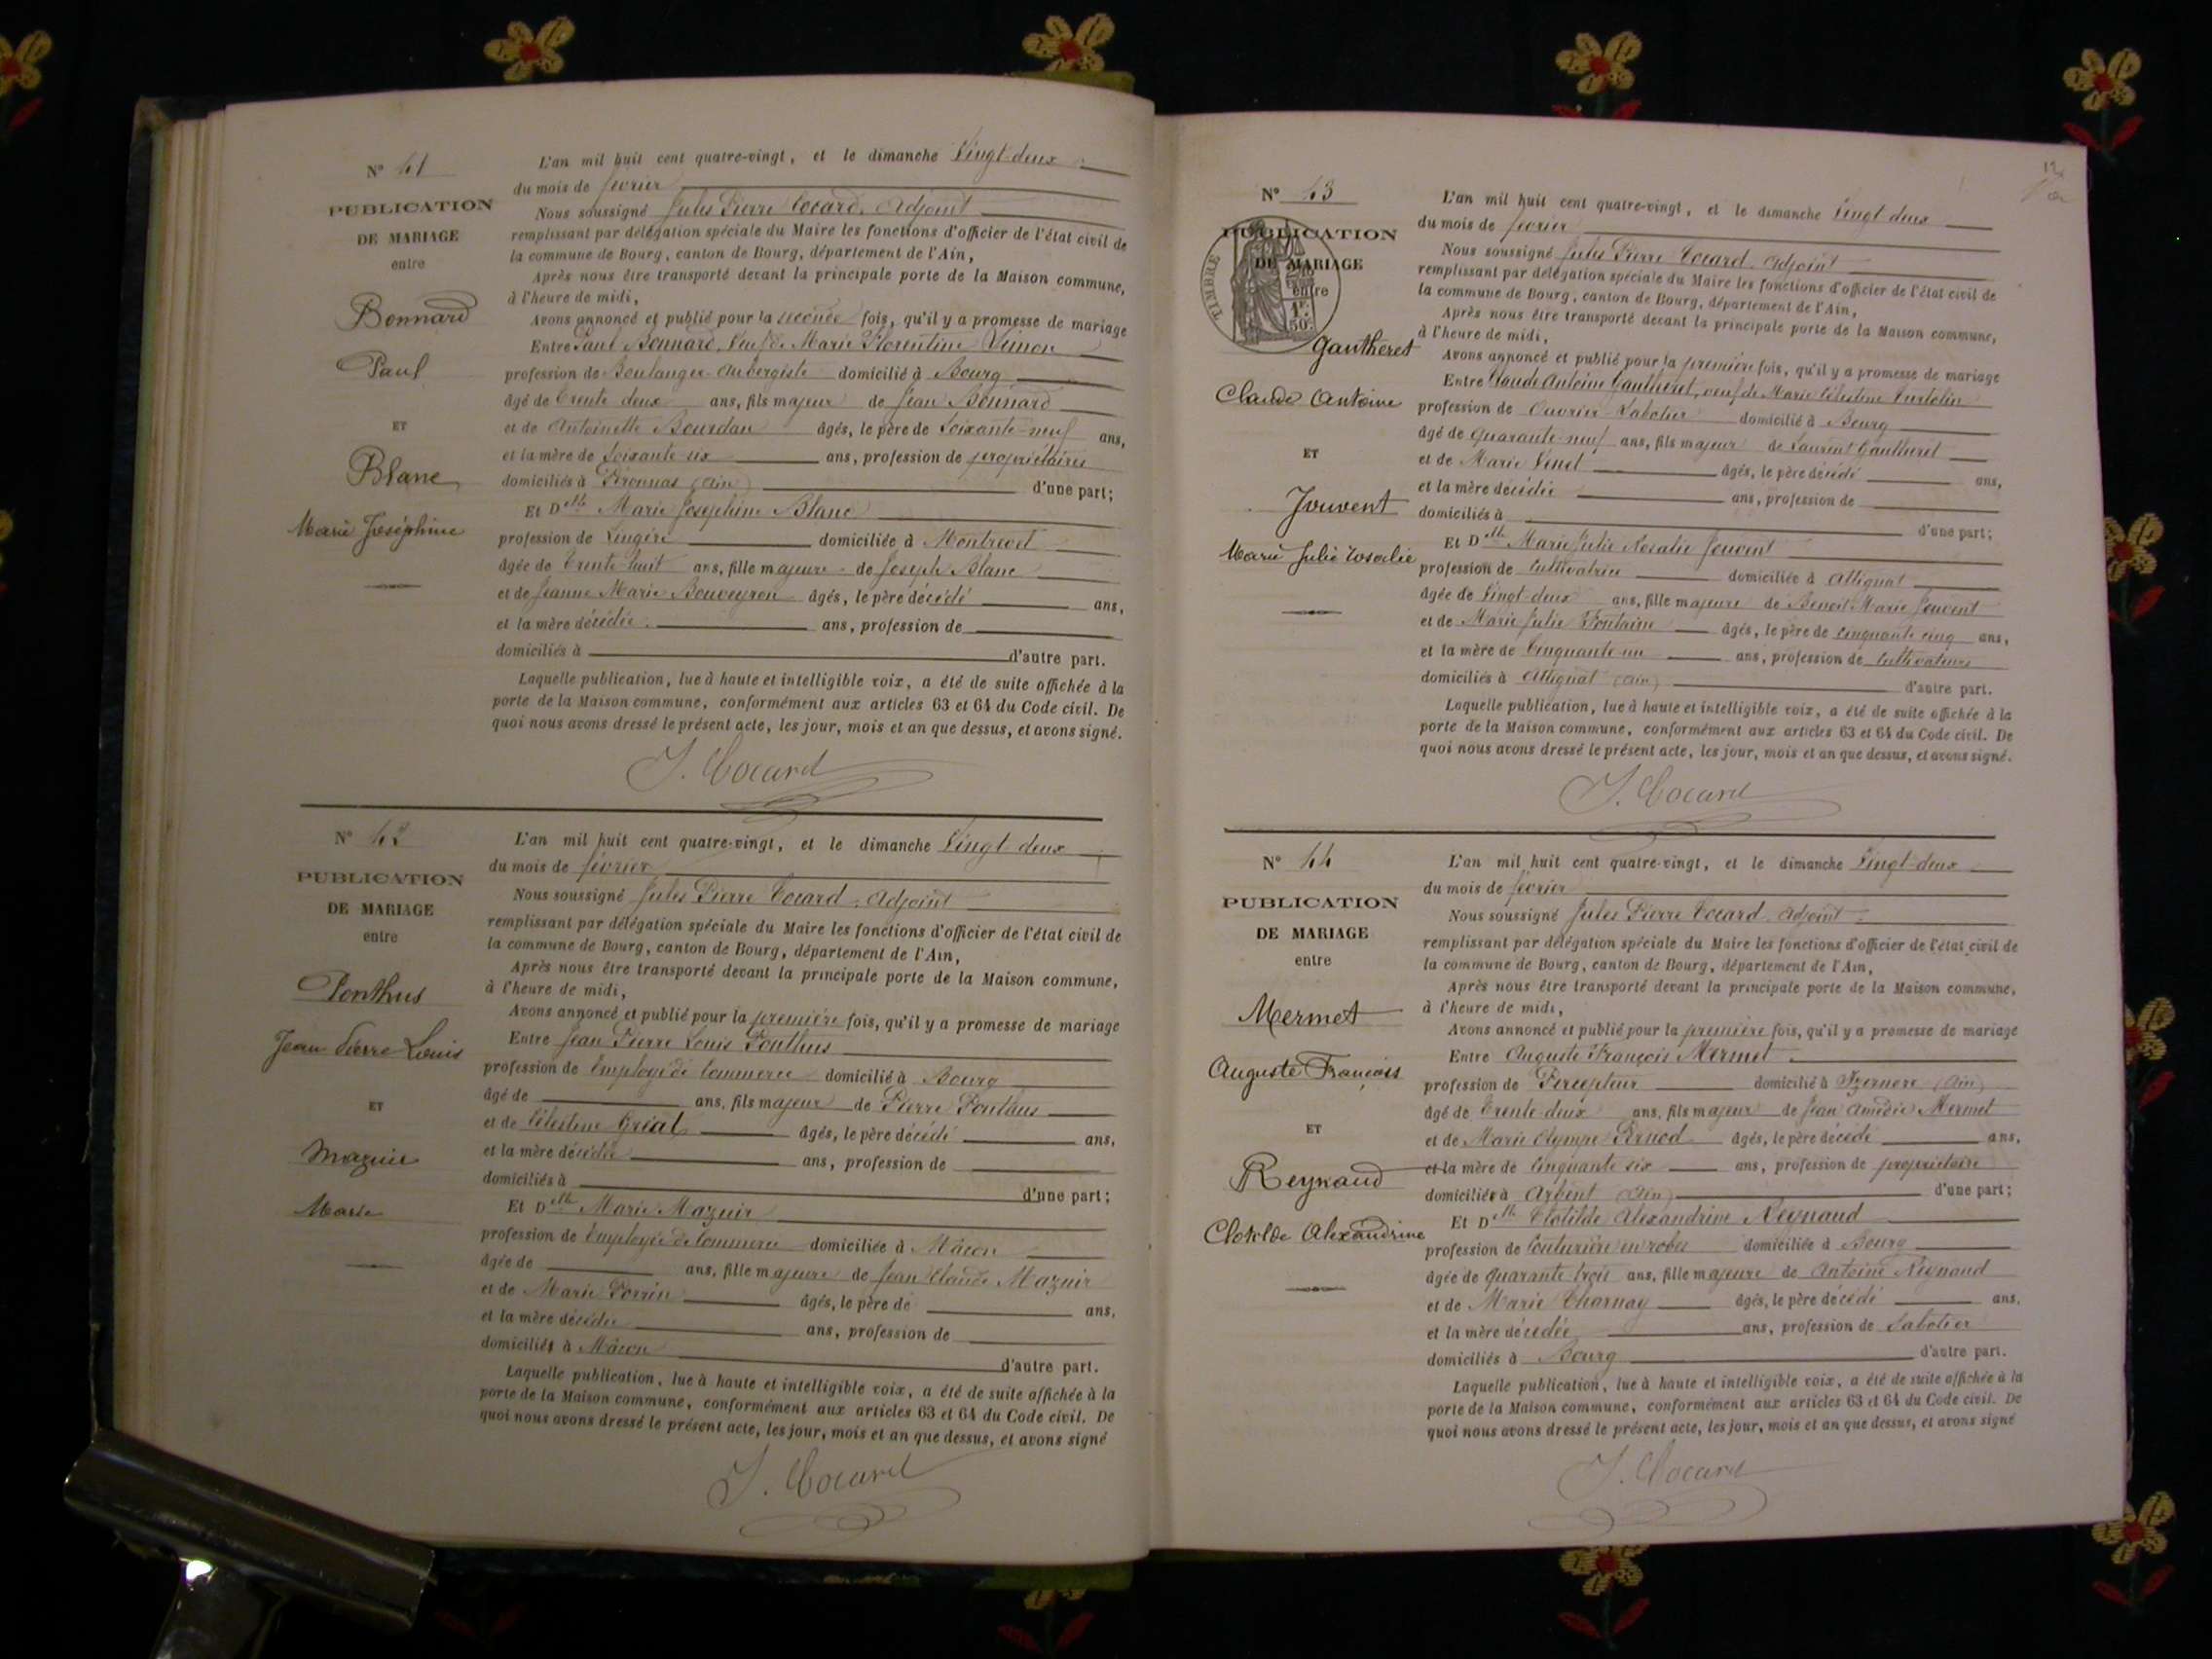 N° 41
PUBLICATION
DE MARIAGE
entre
Bonnard
Paul
ET
Blanc
Marie Joséphine
L'an mil huit cent quatre-vingt, et le dimanche Vingt-deux
du mois de février
Nous soussigné Jules Pierre Cocard, Adjoint
remplissant par délégation spéciale du Maire les fonctions d'officier de l'état civil de
la commune de Bourg, canton de Bourg, département de l'Ain,
Après nous être transporté devant la principale porte de la Maison commune,
à l'heure de midi,
Avons annoncé et publié pour la seconde fois, qu'il y a promesse de mariage
Entre Paul Bonnard, veuf de Marie Florentine
profession de Boulanger-Aubergiste domicilié à Bourg
âgé de trente deux ans, fils majeur de Jean Bonnard
et de Antoinette Bourdan âgés, le père de soixante-neuf ans,
et la mère de soixante six ans, profession de propriétaires
domiciliés à Péronnas (Ain) d'une part;
Et Delle Marie Joséphine Blanc
profession de Lingère domiciliée à Montrevel
âgée de trente huit ans, fille majeure de Joseph Blanc
et de Jeanne Marie Bouveyron âgés, le père décédé ans,
et la mère décédée ans, profession de
domiciliés à d'autre part.
Laquelle publication, lue à haute et intelligible voix, a été de suite affichée à la
porte de la Maison commune, conformément aux articles 63 et 64 du Code civil. De
quoi nous avons dressé le présent acte, les jour, mois et an que dessus, et avons signé.
J. Cocard
N° 42
PUBLICATION
DE MARIAGE
entre
Ponthus
Jean Pierre Louis
ET
Mazuir
Marie
L'an mil huit cent quatre-vingt, et le dimanche Vingt-deux
du mois de février
Nous soussigné Jules Pierre Cocard, Adjoint
remplissant par délégation spéciale du Maire les fonctions d'officier de l'état civil de
la commune de Bourg, canton de Bourg, département de l'Ain,
Après nous être transporté devant la principale porte de la Maison commune,
à l'heure de midi,
Avons annoncé et publié pour la première fois, qu'il y a promesse de mariage
Entre Jean Pierre Louis Ponthus
profession de Employé de Commerce domicilié à Bourg
âgé de ans, fils majeur de Pierre Ponthus
et de Célestine Gréal âgés, le père décédé ans,
et la mère décédée ans, profession de
domiciliés à d'une part;
Et Delle Marie Mazuir
profession de Employée de Commerce domiciliée à Mâcon
âgée de ans, fille majeure de Jean Claude Mazuir
et de Marie Perrin âgés, le père de ans,
et la mère décédée ans, profession de
domiciliés à Mâcon d'autre part.
Laquelle publication, lue à haute et intelligible voix, a été de suite affichée à la
porte de la Maison commune, conformément aux articles 63 et 64 du Code civil. De
quoi nous avons dressé le présent acte, les jour, mois et an que dessus, et avons signé
J. Cocard
12
N° 43
PUBLICATION
DE MARIAGE
entre
TIMBRE
1F.
50c.
Gautheret
Claude Antoine
ET
Jouvent
Marie Julie Rosalie
L'an mil huit cent quatre-vingt, et le dimanche Vingt-deux
du mois de février
Nous soussigné Jules Pierre Cocard, Adjoint
remplissant par délégation spéciale du Maire les fonctions d'officier de l'état civil de
la commune de Bourg, canton de Bourg, département de l'Ain,
Après nous être transporté devant la principale porte de la Maison commune,
à l'heure de midi,
Avons annoncé et publié pour la première fois, qu'il y a promesse de mariage
Entre Claude Antoine Gautheret, veuf de Marie Célestine
profession de Ouvrier Sabotier domicilié à Bourg
âgé de quarante-neuf ans, fils majeur de Laurent Gautheret
et de Marie Venet âgés, le père décédé ans,
et la mère décédée ans, profession de
domiciliés à d'une part;
Et Delle Marie Julie Rosalie Jouvent
profession de Cultivatrice domiciliée à Attignat
âgée de Vingt-deux ans, fille majeure de Benoît Marie Jouvent
et de Marie Julie Fontaine âgés, le père de cinquante cinq ans,
et la mère de Cinquante-un ans, profession de Cultivateurs
domiciliés à Attignat (Ain) d'autre part.
Laquelle publication, lue à haute et intelligible voix, a été de suite affichée à la
porte de la Maison commune, conformément aux articles 63 et 64 du Code civil. De
quoi nous avons dressé le présent acte, les jour, mois et an que dessus, et avons signé.
J. Cocard
N° 44
PUBLICATION
DE MARIAGE
entre
Mermet
Auguste François
ET
Reynaud
Clotilde Alexandrine
L'an mil huit cent quatre-vingt, et le dimanche Vingt-deux
du mois de février
Nous soussigné Jules Pierre Cocard, Adjoint
remplissant par délégation spéciale du Maire les fonctions d'officier de l'état civil de
la commune de Bourg, canton de Bourg, département de l'Ain,
Après nous être transporté devant la principale porte de la Maison commune,
à l'heure de midi,
Avons annoncé et publié pour la première fois, qu'il y a promesse de mariage
Entre Auguste François Mermet
profession de Percepteur domicilié à Izernore (Ain)
âgé de trente-deux ans, fils majeur de Jean Amédée Mermet
et de Marie Olympe Pernod âgés, le père décédé ans,
et la mère de Cinquante six ans, profession de propriétaire
domiciliés à Arbent (Ain) d'une part;
Et Delle Clotilde Alexandrine Reynaud
profession de Couturière en robes domiciliée à Bourg
âgée de quarante trois ans, fille majeure de Antoine Reynaud
et de Marie Charnay âgés, le père décédé ans,
et la mère décédée ans, profession de Sabotier
domiciliés à Bourg d'autre part.
Laquelle publication, lue à haute et intelligible voix, a été de suite affichée à la
porte de la Maison commune, conformément aux articles 63 et 64 du Code civil. De
quoi nous avons dressé le présent acte, les jour, mois et an que dessus, et avons signé
J. Cocard